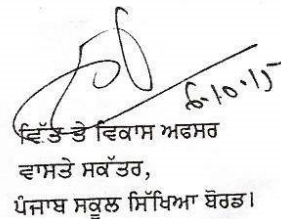 6.10.15
ਵਿੱਤ ਤੇ ਵਿਕਾਸ ਅਫਸਰ
ਵਾਸਤੇ ਸਕੱਤਰ,
ਪੰਜਾਬ ਸਕੂਲ ਸਿੱਖਿਆ ਬੋਰਡ।